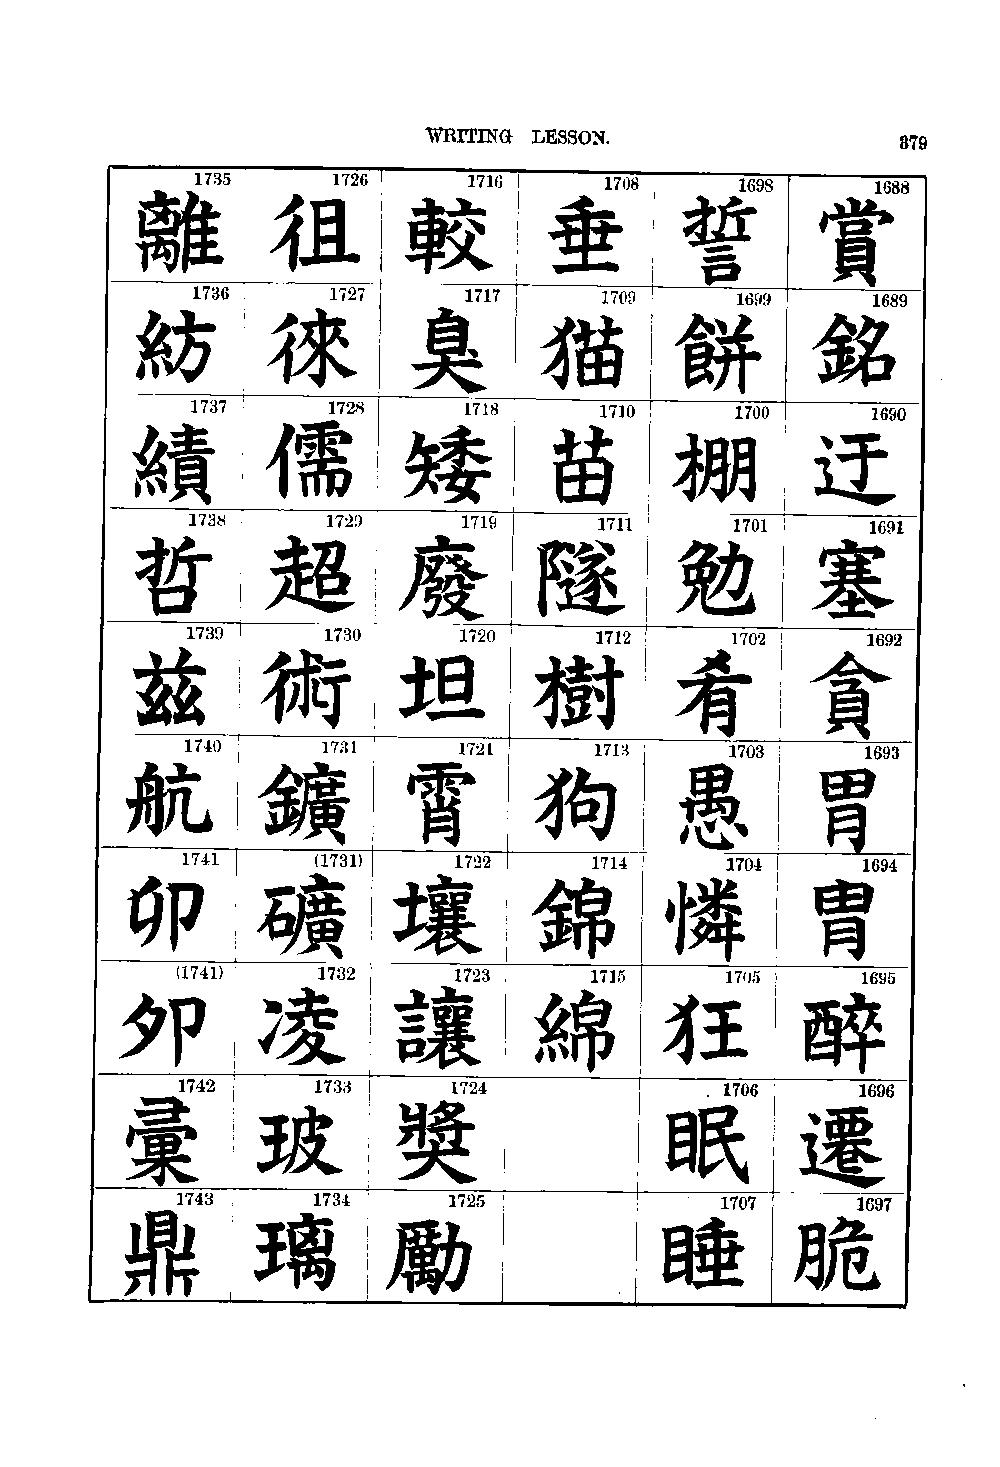 WRITING LESSON. 379
1688 賞
1689 銘
1690 迂
1691 塞
1692 貪
1693 胃
1694 冑
1695 醉
1696 遷
1697 脆
1698 誓
1699 餅
1700 棚
1701 勉
1702 肴
1703 愚
1704 憐
1705 狂
1706 眠
1707 睡
1708 垂
1709 猫
1710 苗
1711 隧
1712 樹
1713 狗
1714 錦
1715 綿
1716 較
1717 臭
1718 矮
1719 廢
1720 坦
1721 霄
1722 壤
1723 讓
1724 奬
1725 勵
1726 徂
1727 徠
1728 儒
1729 超
1730 術
1731 鑛
(1731) 礦
1732 凌
1733 玻
1734 璃
1735 離
1736 紡
1737 績
1738 哲
1739 茲
1740 航
1741 卯
(1741) 夘
1742 彙
1743 鼎